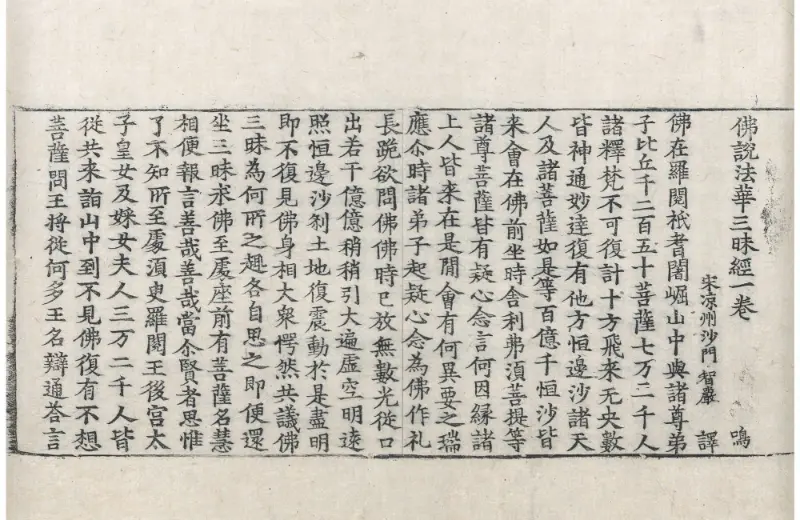 佛說法華三昧經一卷 鳴
宋涼州沙門智嚴 譯
佛在羅閱祇耆闍崛山中與諸尊弟
子比丘千二百五十菩薩七万二千人
諸釋梵不可復計十方飛来无央數
皆神通妙達復有他方恒邊沙諸天
人及諸菩薩如是等百億千恒沙皆
来會在佛前坐時舍利弗須菩提等
諸尊菩薩皆有疑心念言何因緣諸
上人皆来在是閒會有何異要之瑞
應尒時諸弟子起疑心念為佛作礼
長跪欲問佛佛時已放無數光從口
出若干億億稍稍引大遍虛空明逵
照恒邊沙剎土地復震動於是盡明
即不復見佛身相大衆愕然共議佛
三昧為何所之趣各自思之即便還
坐三昧求佛至處座前有菩薩名慧
相便報言善哉善哉當尒賢者思惟
了不知所至處須臾羅閱王後宮太
子皇女及婇女夫人三万二千人皆
從共来詣山中到不見佛復有不想
菩薩問王將從何多王名辯通荅言